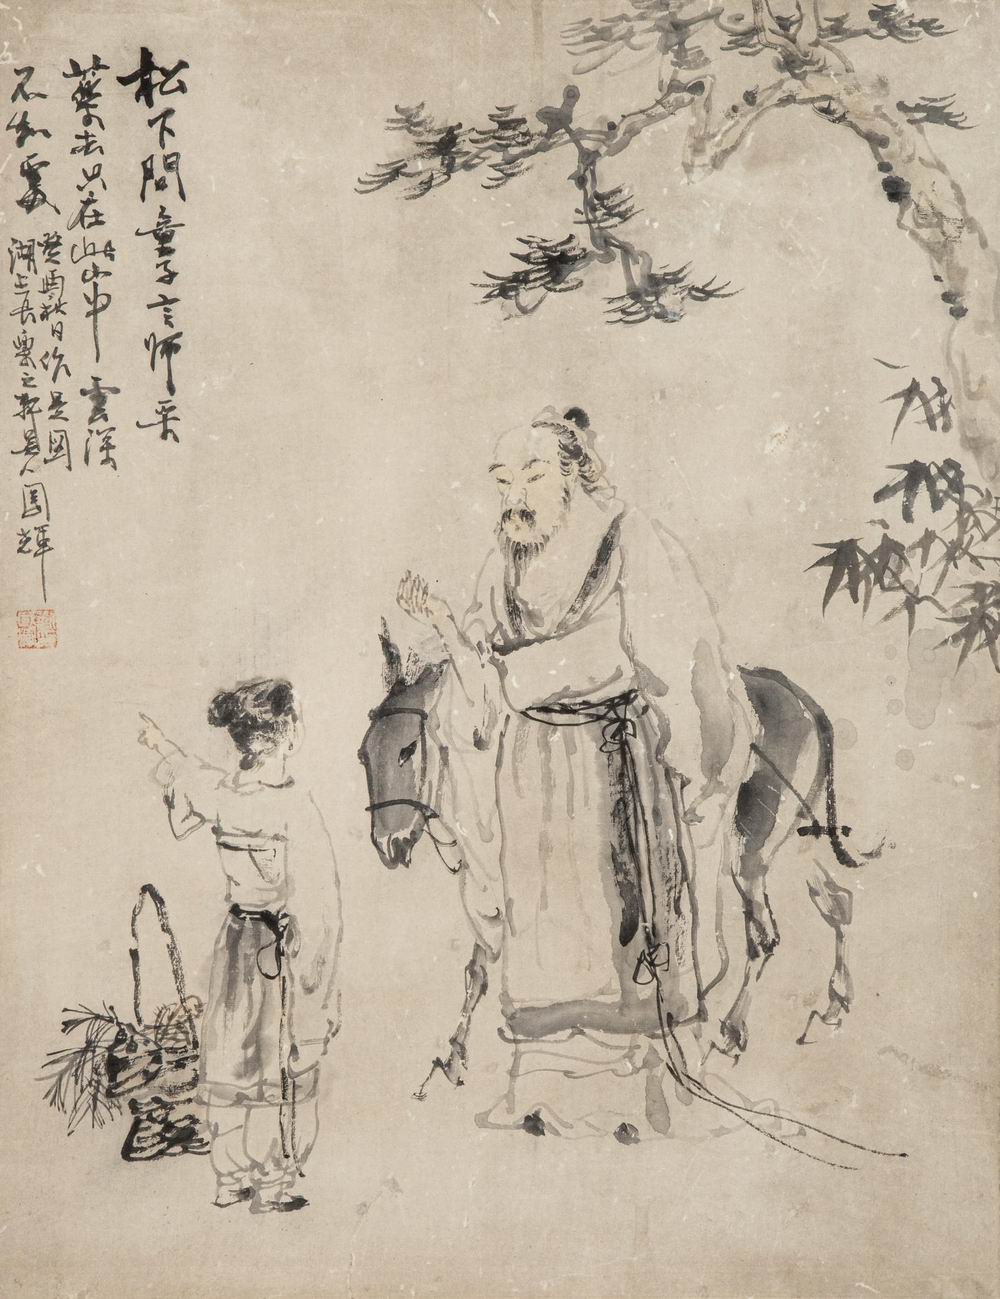 松下問童子言師采
藥去只在此山中雲深
不知處
癸酉秋日作是圖
湖上長樂之
國輝